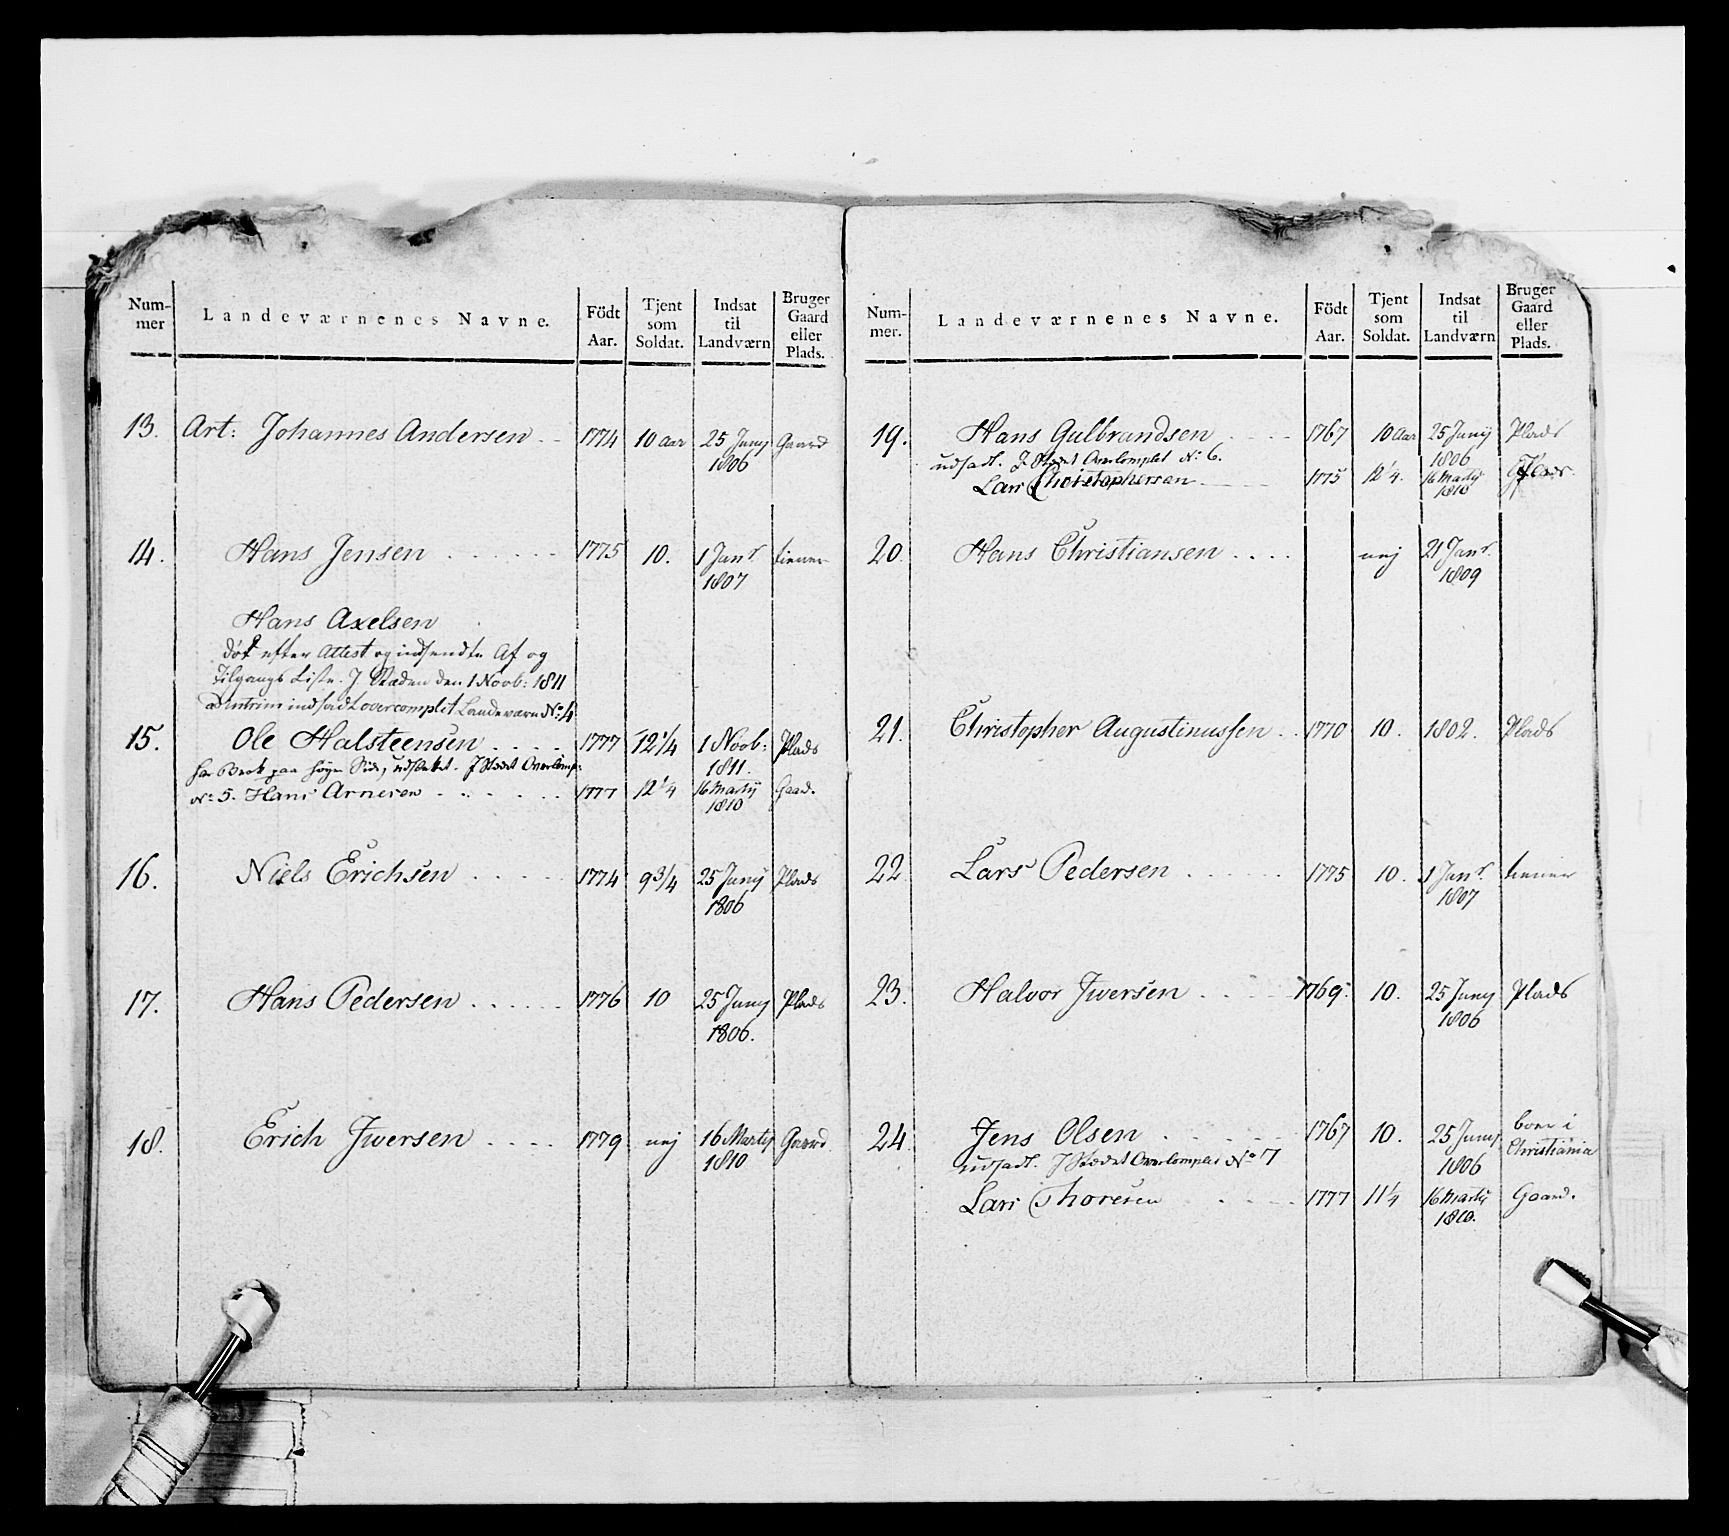 Num-
mer
Landeværnenes Navne.
Födt
Aar.
Tjent
som
Soldat.
Indsat
til
Landværn
Bruger
Gaard
eller
Plads.
13. Art: Johannes Andersen 1774 10 aar 25 Juny Gaard
1806
14. Hans Jensen 1775 10. 1 Janr. tiener
1807
Hans Axelsen
död efter Attest og indsendte Af og
Tilgangs Liste. J Stæden den 1 Novb: 1811
indsadt overcomplet Landeværn No: 4
15. Ole Halsteensen 1777 12 1/4 1 Novb: Plads
1811.
har Brok paa höyre Side, udsadt. J Stædet Overkomp:
No 5. Hans Arnesen 1777 12 1/4 16 Martij Gaad.
1810
16. Niels Erichsen 1774 9 3/4 25 Juny Plads
1806
17. Hans Pedersen 1776 10 25 Juny Plads
1806.
18. Erich Iwersen 1779 nej 16 Martij Gaard
1810
Num-
mer.
Landeværnenes Navne.
Födt
Aar.
Tjent
som
Soldat.
Indsat
til
Landværn
Bruger
Gaard
eller
Plads.
19. Hans Gulbrandsen 1767 10 Aar 25 Junij Plads
1806
udsadt. J Stædet Overkomplet No: 6.
Lars Christophersen 1775 12 1/4. 16 Martij
1810
20. Hans Christiansen nej 21 Janr.
1809
21. Christopher Augustinussen 1770 10. 1802. Plads
22 Lars Pedersen 1775 10. 1 Janr. tiener
1807
23. Halvor Iwersen 1769. 10. 25 Juny Plads
1806
24 Jens Olsen 1767 10. 25 Juny boer i
1806 Christiania
udsadt. J Stædet Overkomplet No 7
Lars Thoresen 1777 11 1/4 16 Martij Gaard.
1810.